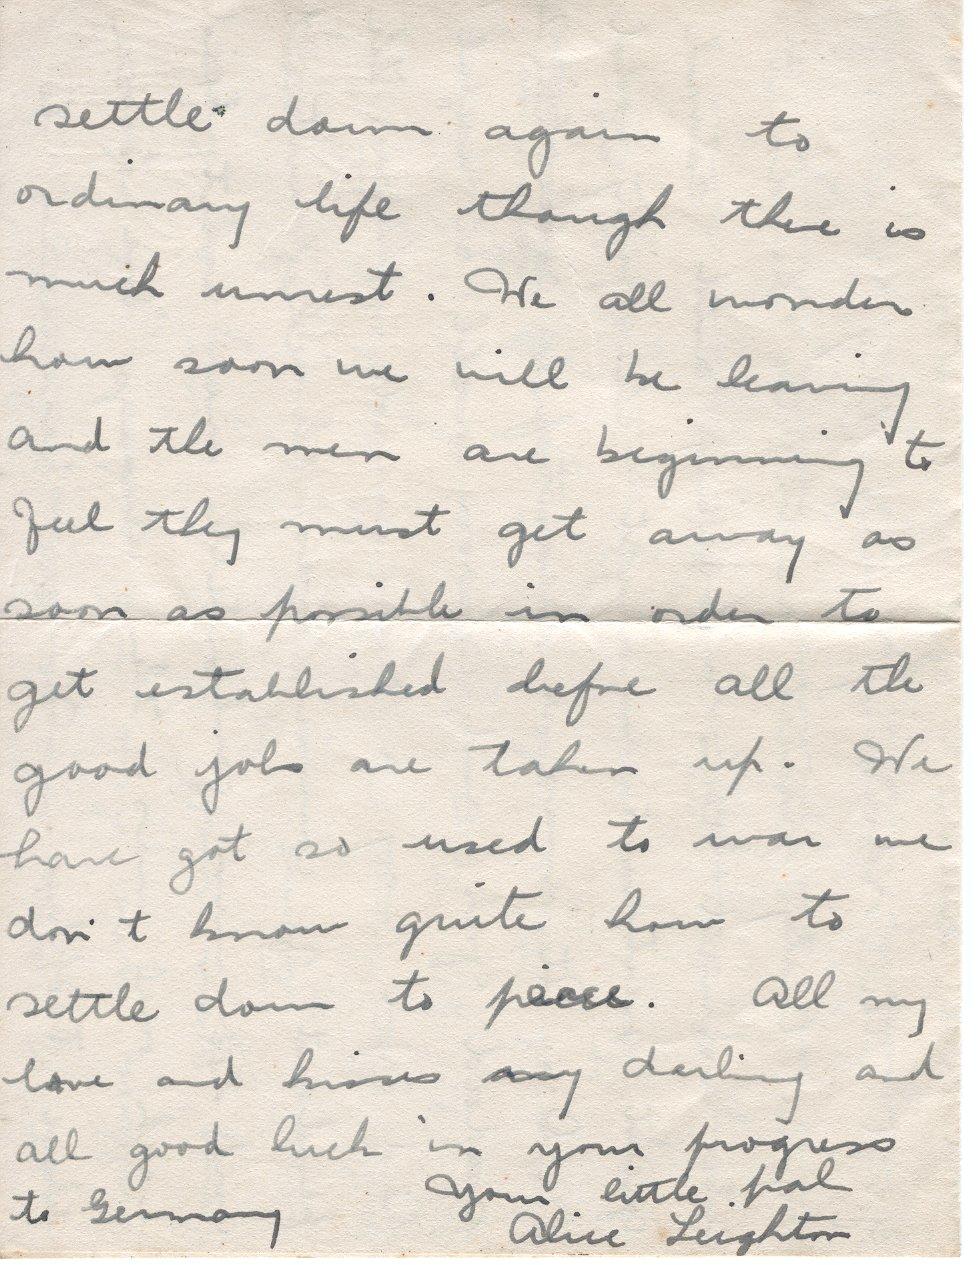 settle down again to
ordinary life though there is
much unrest. We all wonder
how soon we will be leaving
and the men are beginning to
feel they must get away as
soon as possible in order to
get established before all the
good jobs are taken up. We
have got so used to war we
don't know quite how to
settle down to peace. All my
love and kisses my darling and
all good luck in your progress
to Germany Your little pal
Alice Leighton